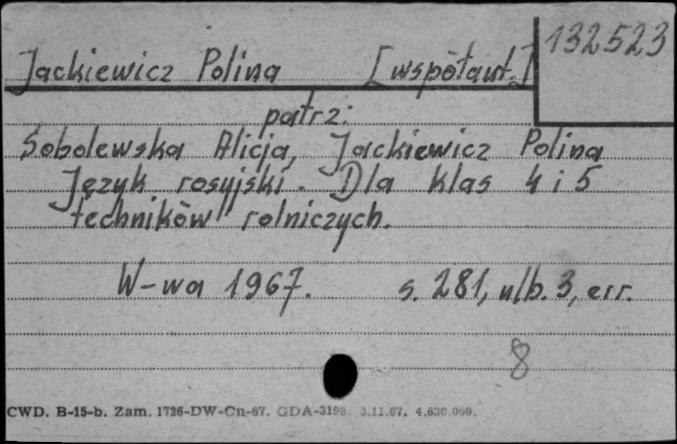 132523
Jackiewicz Polina [współaut.]
patrz:
Sobolewska Alicja, Jackiewicz Polina
Język rosyjski. Dla klas 4 i 5
techników rolniczych.
W-wa 1967. s. 281, nlb. 3, err.
8
CWD. B-15-b. Zam. 1726-DW-Cn-67. GDA-3198. 3.11.67. 4.630.000.